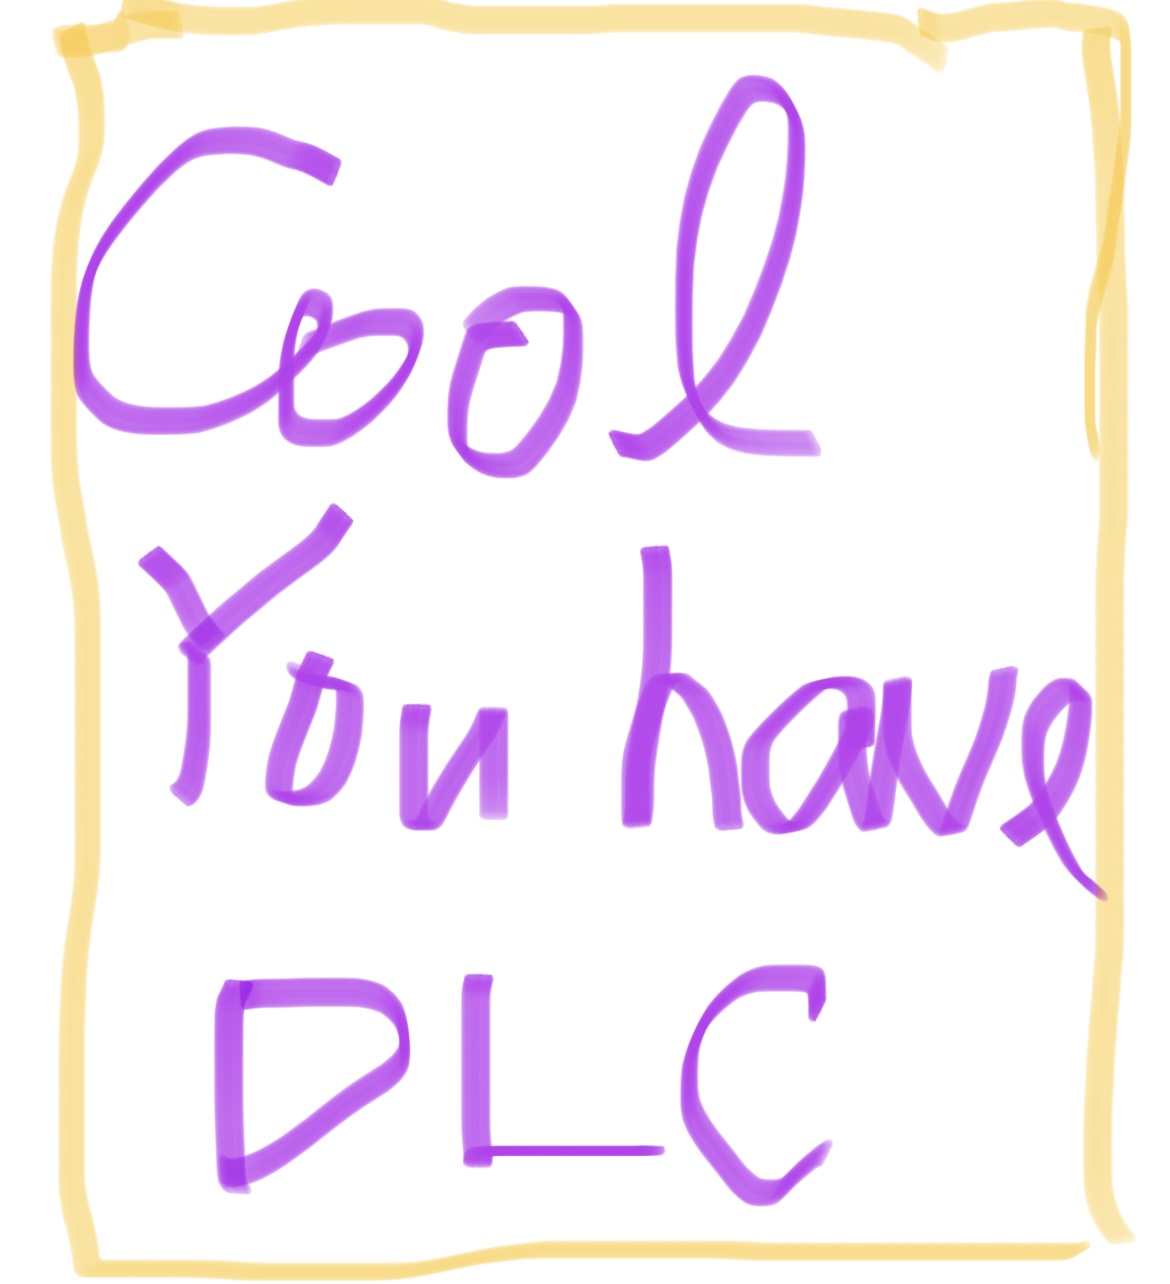 Cool
You have
DLC